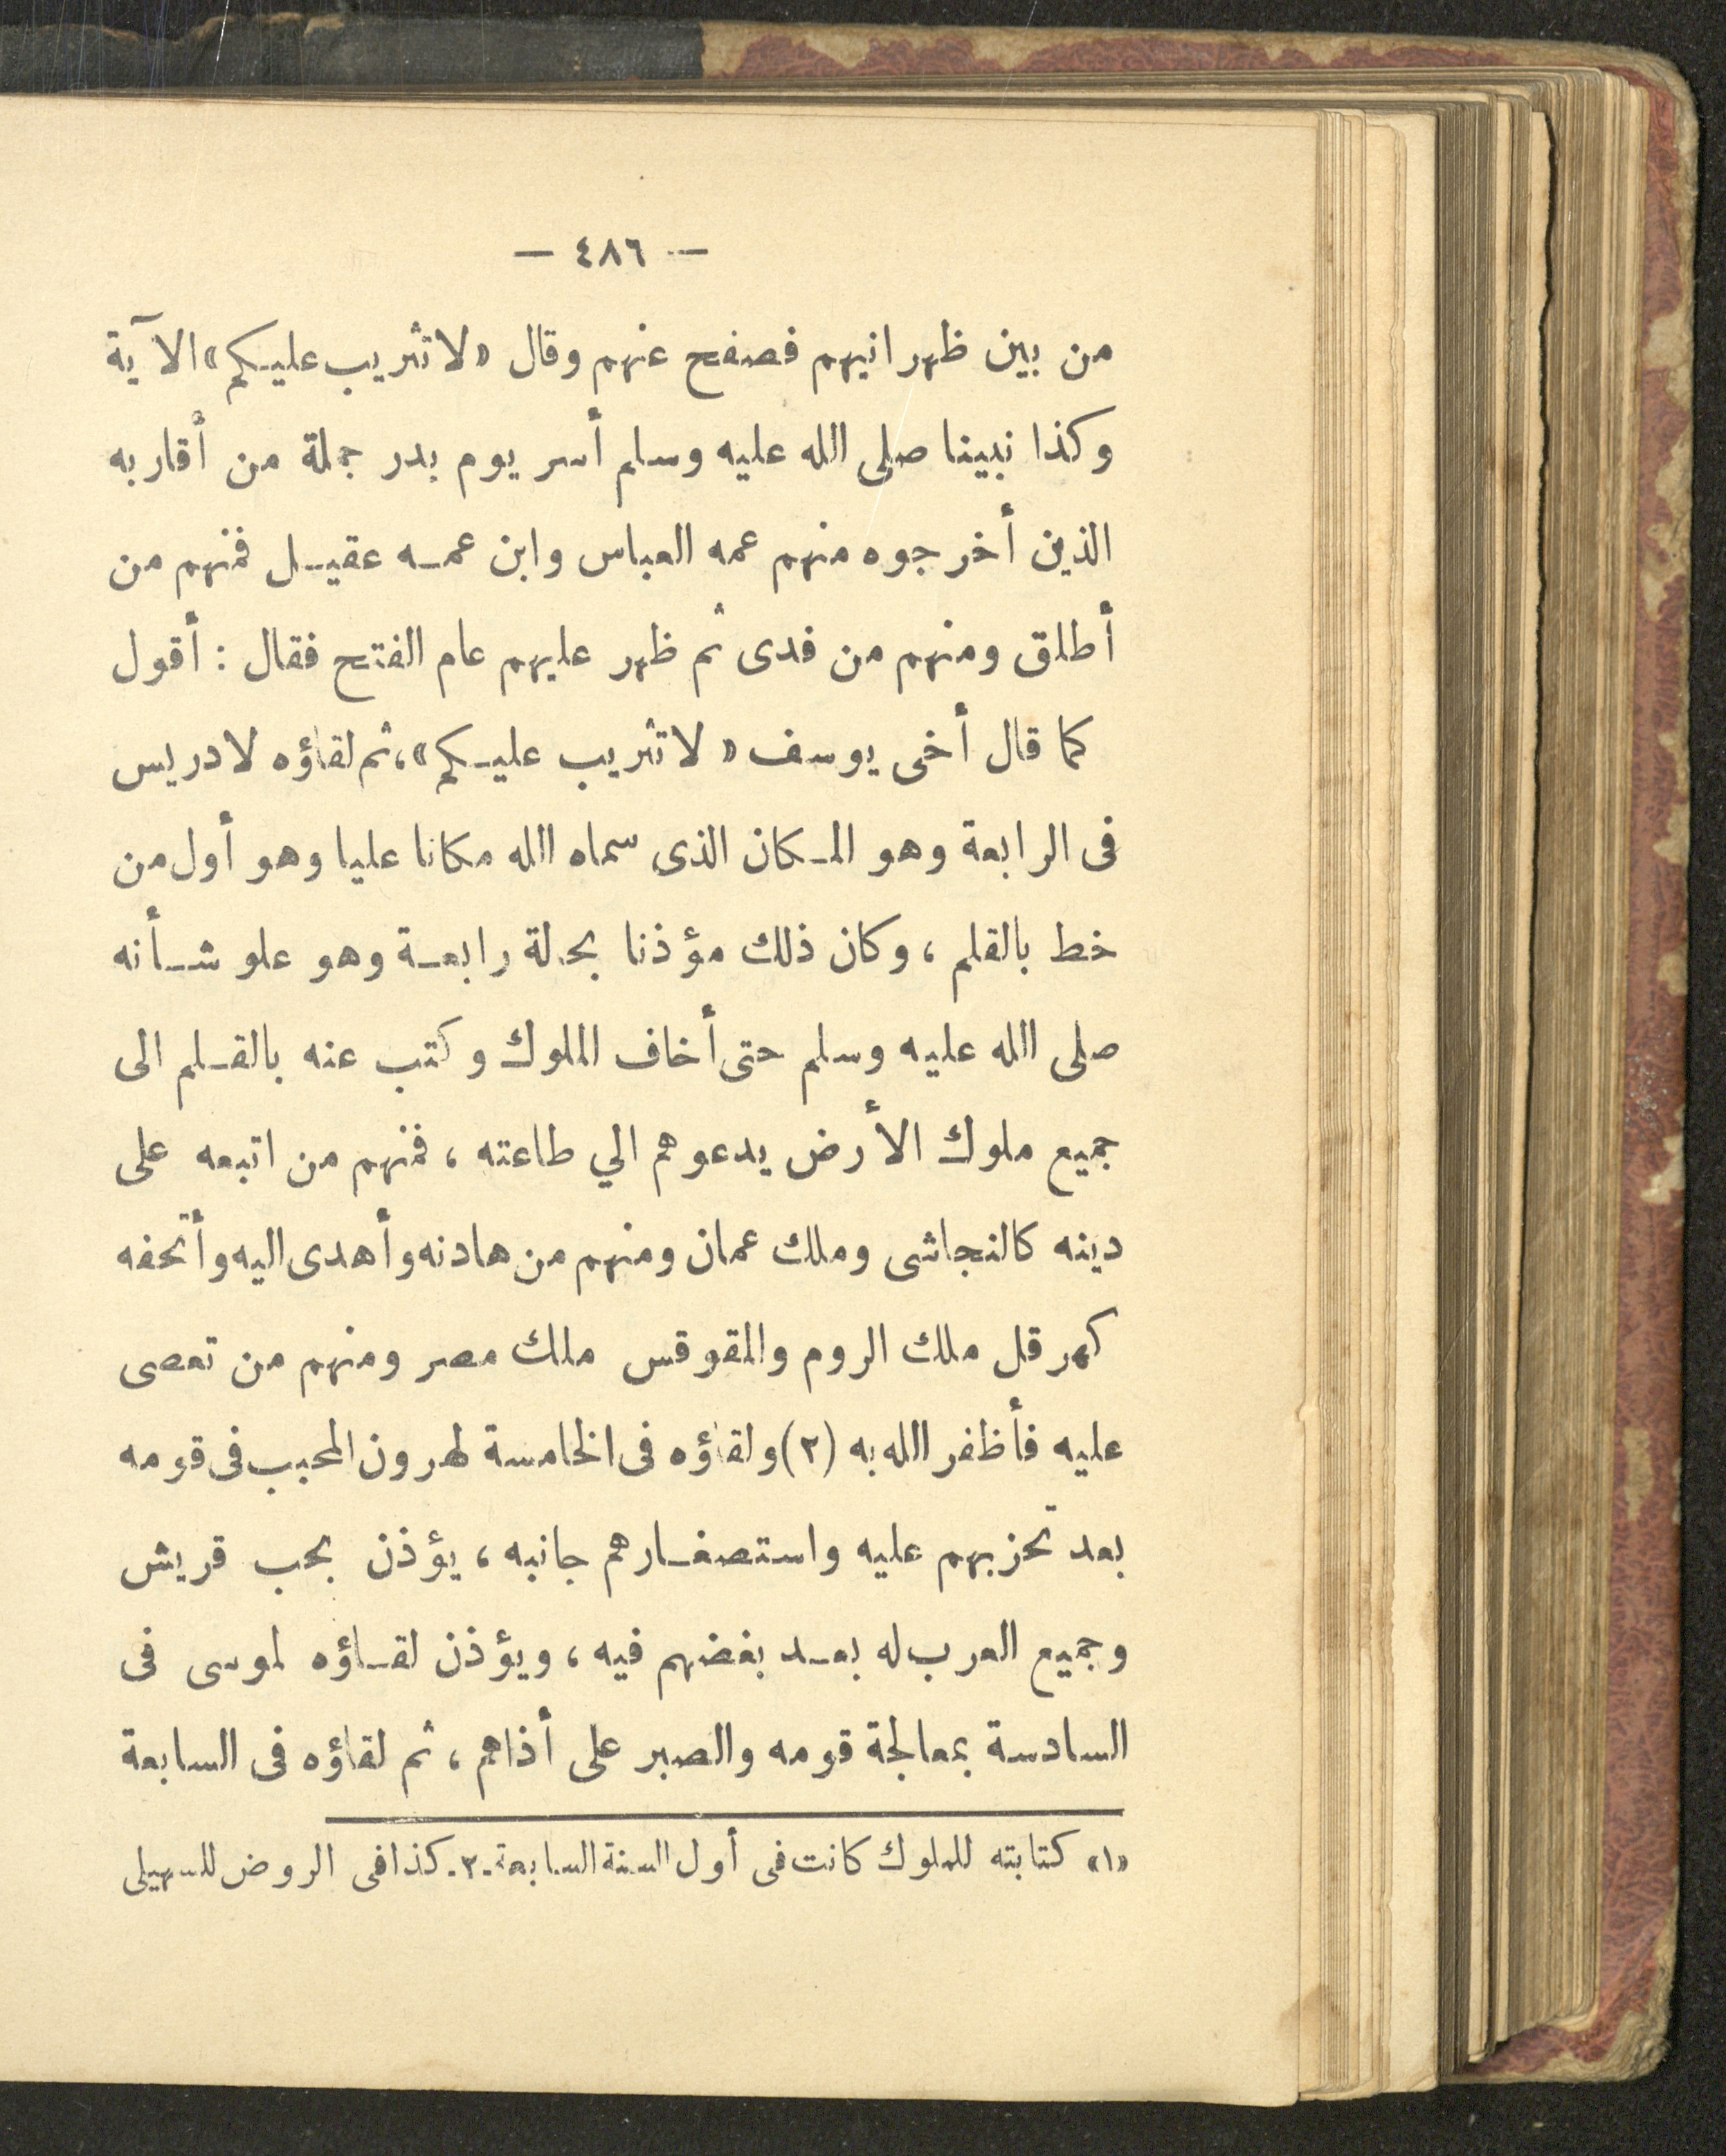 — ٤٨٦ —
من بين ظهرانيهم فصفح عنهم وقال «لا تثريب عليكم» الآية
وكذا نبينا صلى الله عليه وسلم أسر يوم بدر جملة من أقاربه
الذين أخرجوه منهم عمه العباس وابن عمه عقيل فمنهم من
أطلق ومنهم من فدى ثم ظهر عليهم عام الفتح فقال : أقول
كما قال أخى يوسف « لا تثريب عليكم»، ثم لقاؤه لادريس
فى الرابعة وهو المكان الذى سماه الله مكانا عليا وهو أول من
خط بالقلم ، وكان ذلك مؤذنا بحالة رابعة وهو علو شأنه
صلى الله عليه وسلم حتى أخاف الملوك وكتب عنه بالقلم الى
جميع ملوك الأرض يدعوهم الي طاعته ، فمنهم من اتبعه على
دينه كالنجاشى وملك عمان ومنهم من هادنه وأهدى اليه وأتحفه
كهرقل ملك الروم والمقوقس ملك مصر ومنهم من تعصى
عليه فأظفر الله به (٢) ولقاؤه فى الخامسة لهرون المحبب فى قومه
بعد تحزبهم عليه واستصغارهم جانبه ، يؤذن بحب قريش
وجميع العرب له بعد بغضهم فيه ، ويؤذن لقاؤه لموسى فى
السادسة بمعالجة قومه والصبر على أذاهم ، ثم لقاؤه فى السابعة
«١» كتابته للملوك كانت فى أول السنة السابعة . ٢ . كذا فى الروض للسهيلى